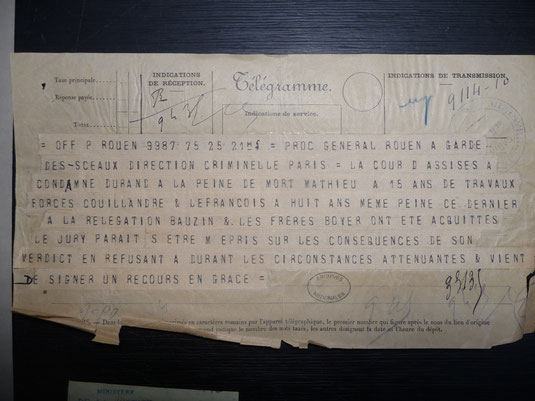 Taxe principale
Réponse payée
TOTAL
INDICATIONS
DE RÉCEPTION.
Télégramme.
Indications de service.
INDICATIONS DE TRANSMISSION.
9114-10
= OFF P ROUEN 9987 75 25 = PROC GENERAL ROUEN A GARDE
DES-SCEAUX DIRECTION CRIMINELLE PARIS = LA COUR D ASSISES A
CONDAMNE DURAND A LA PEINE DE MORT MATHIEU A 15 ANS DE TRAVAUX
FORCES COUILLANDRE & LEFRANCOIS A HUIT ANS MEME PEINE CE DERNIER
A LA RELEGATION BAUZIN & LES FRÈRES BOYER ONT ETE ACQUITTES
LE JURY PARAIT S ETRE M EPRIS SUR LES CONSEQUENCES DE SON
VERDICT EN REFUSANT A DURANT LES CIRCONSTANCES ATTENUANTES & VIENT
DE SIGNER UN RECOURS EN GRACE =
ARCHIVES
NATIONALES
en caractères romains par l'appareil télégraphique, le premier nombre qui figure après le nom du lieu d'origine
quand indique le nombre des mots taxés, les autres désignent la date et l'heure du dépôt.
MINISTÈRE